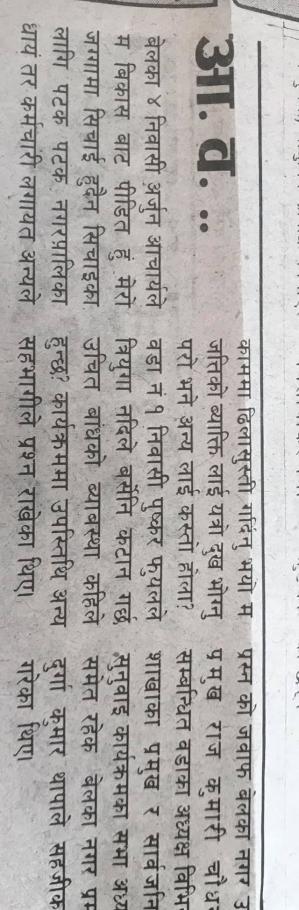 आ. व. ..
बेलका ४ निवासी अर्जुन आचार्यले
म विकास बाट पीडित हुं मेरो
जग्गामा सिचाई हुदैन सिचाइका
लागि पटक पटक नगरपालिका
धायं तर कर्मचारी लगायत अन्यले
काममा ढिलासुस्ती गर्दिनु भयो म
जतिको ब्यक्ति लाई यत्रो दुख भोग्नु
परो भने अन्य लाई कस्तो होला?
वडा नं १ निवासी पुष्कर फुयलले
त्रियुगा नदिले बर्सेनि कटान गर्छ
उचित बांधको ब्यावस्था कहिले
हुन्छ? कार्यक्रममा उपस्तिथि अन्य
सहभागीले प्रश्न राखेका थिए।
प्रश्न को जवाफ बेलका नगर उ
प्रमुख राज कुमारी चौध
सम्बन्धित वडका अध्यक्ष विभि
शाखाका प्रमुख र सार्वजनि
सुनुवाइ कार्यक्रमका सभा अध्य
समेत रहेक बेलका नगर प्रम
दुर्गा कुमार थापले सहजीक
गरेका थिए।